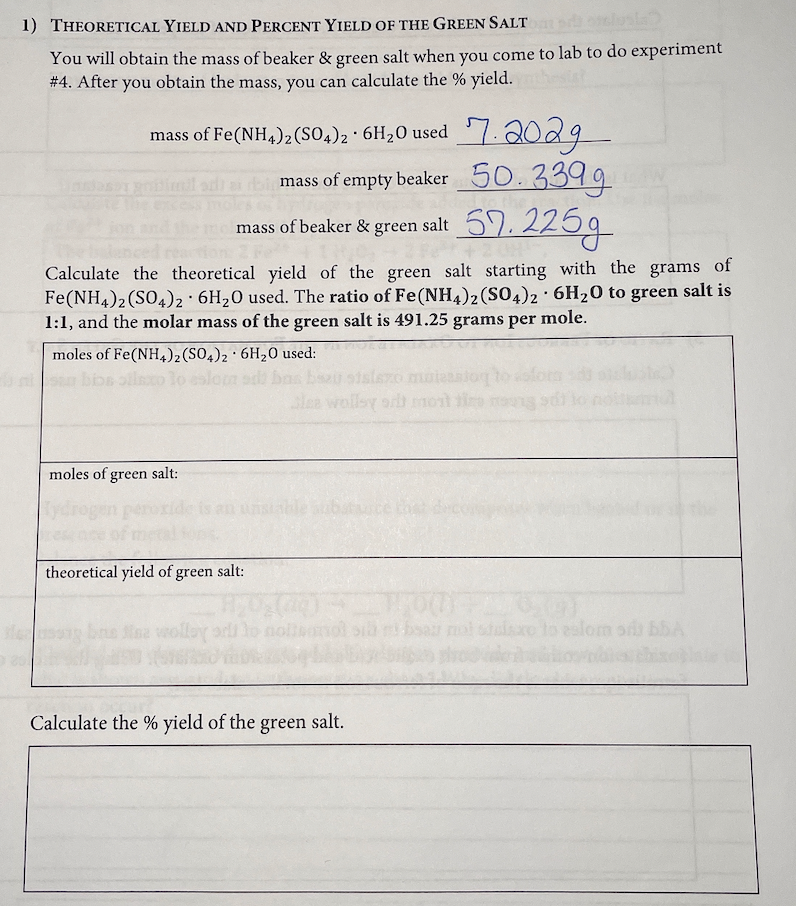 1) THEORETICAL YIELD AND PERCENT YIELD OF THE GREEN SALT
You will obtain the mass of beaker & green salt when you come to lab to do experiment
#4. After you obtain the mass, you can calculate the % yield.
mass of Fe(NH₄)₂(SO₄)₂ · 6H₂O used 7.202g
mass of empty beaker 50.339g
mass of beaker & green salt 57.225g
Calculate the theoretical yield of the green salt starting with the grams of
Fe(NH₄)₂(SO₄)₂ · 6H₂O used. The ratio of Fe(NH₄)₂(SO₄)₂ · 6H₂O to green salt is
1:1, and the molar mass of the green salt is 491.25 grams per mole.
moles of Fe(NH₄)₂(SO₄)₂ · 6H₂O used:
moles of green salt:
theoretical yield of green salt:
Calculate the % yield of the green salt.